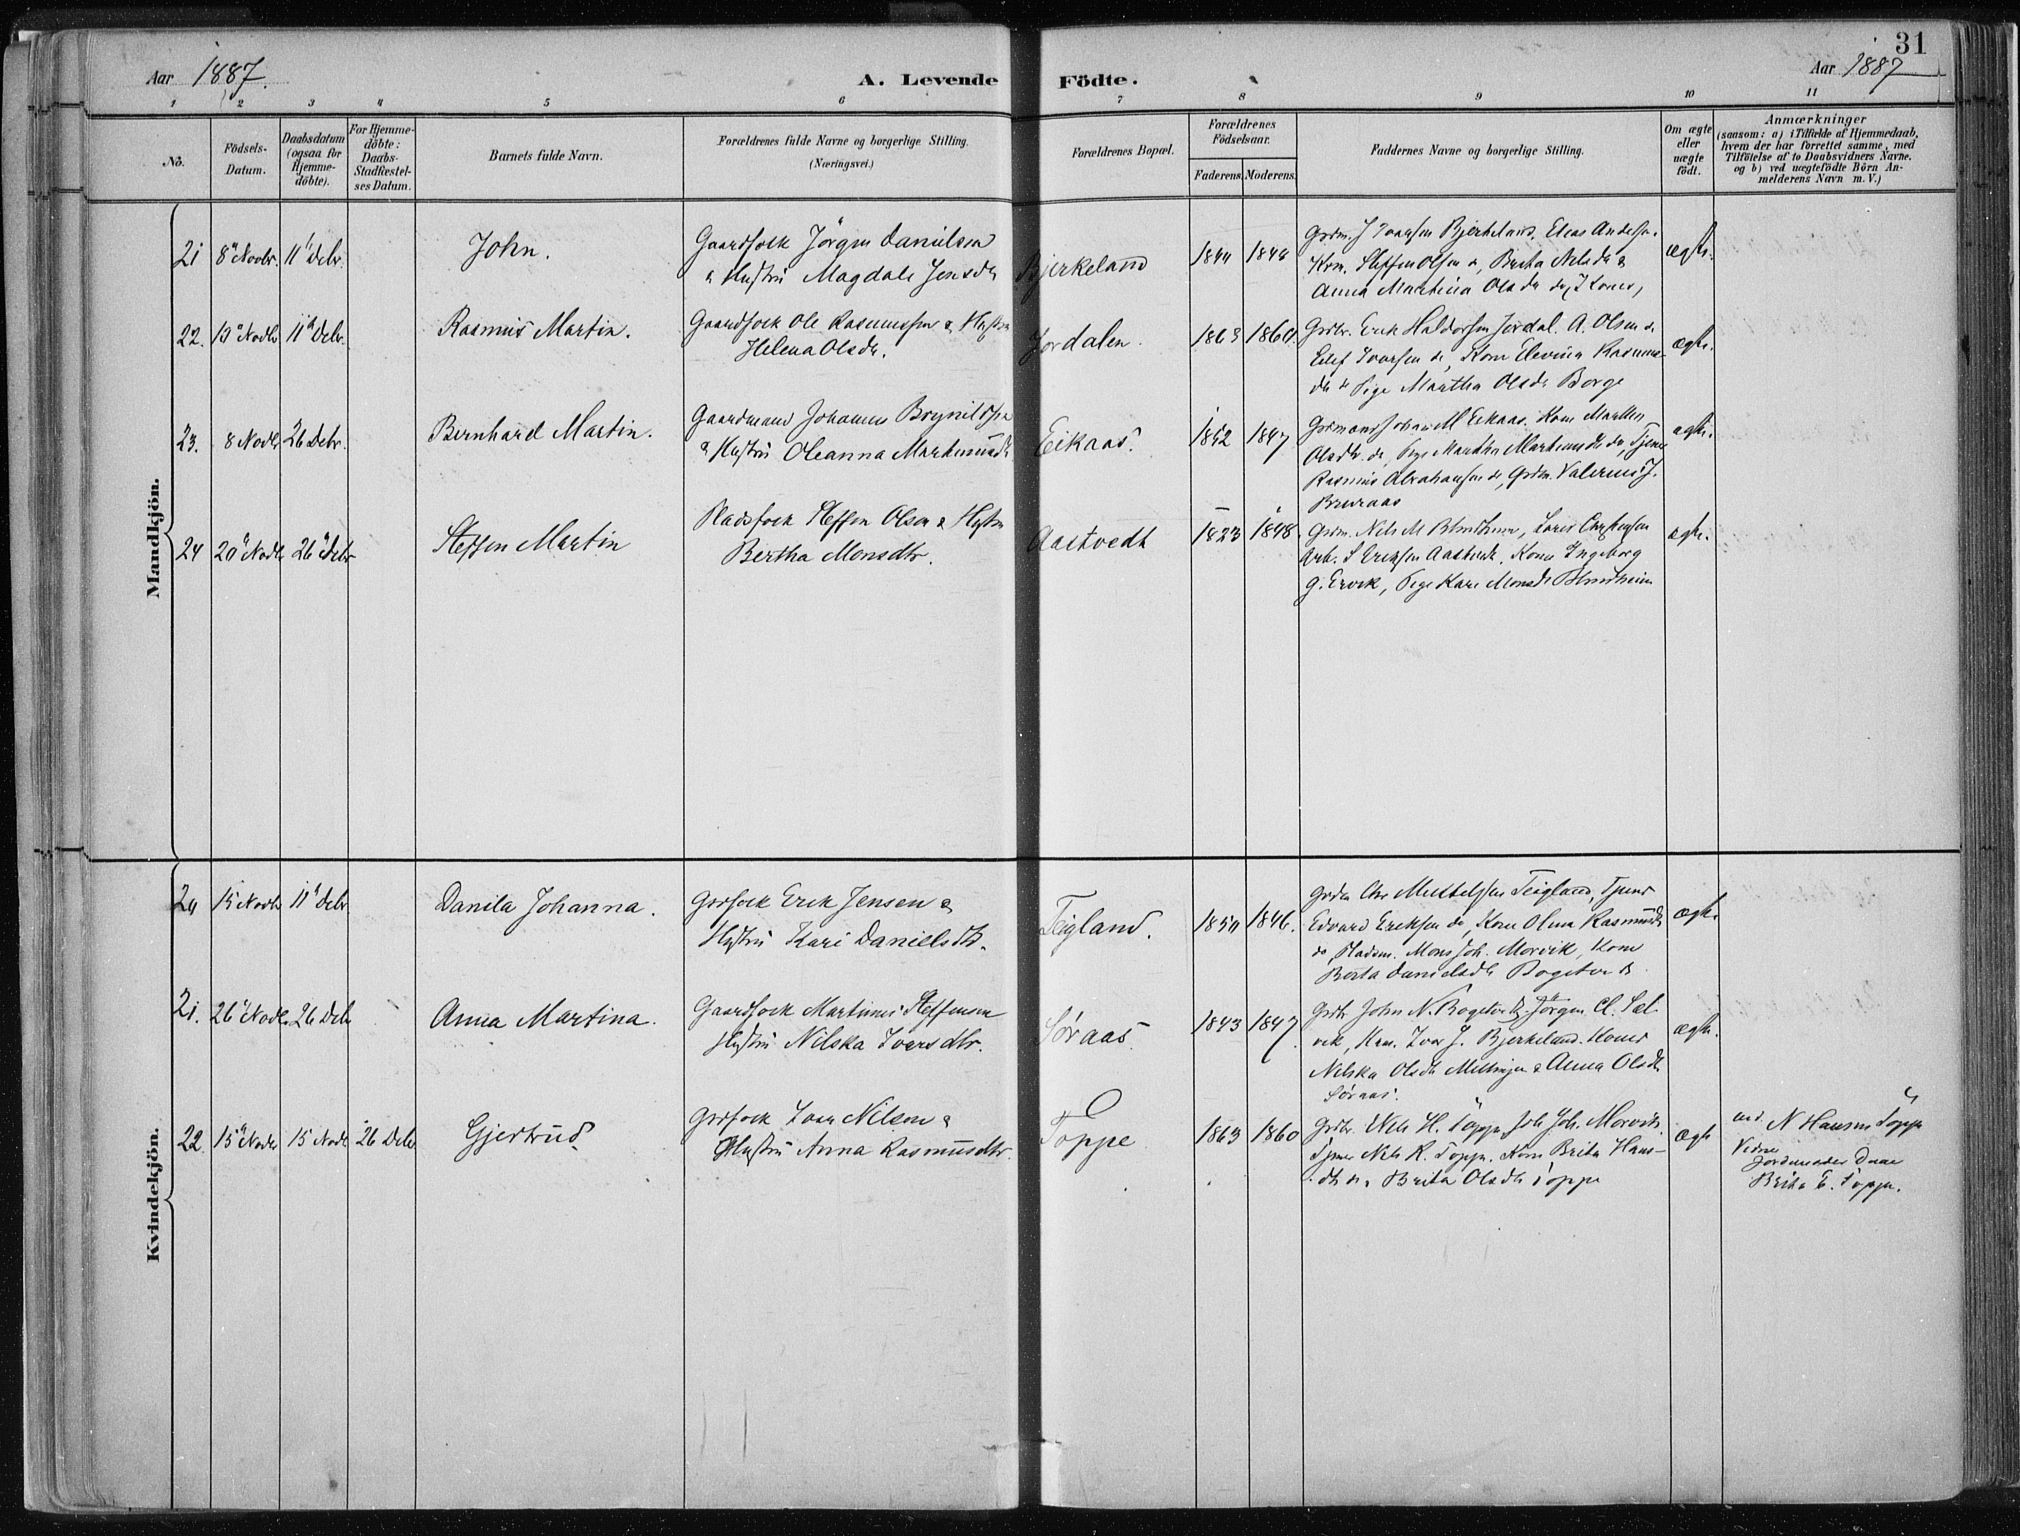 31
Aar 1887.
A. Levende Födte.
Aar 1887
1 2 3 4 5 6 7 8 9 10 11
No.
Födsels-Datum.
Daabsdatum (ogsaa for Hjemme-döbte).
For Hjemme-döbte: Daabs-Stadfæstel-ses Datum.
Barnets fulde Navn.
Forældrenes fulde Navne og borgerlige Stilling. (Næringsvei.)
Forældrenes Bopæl.
Forældrenes Födselsaar.
Faderens. Moderens.
Faddernes Navne og borgerlige Stilling.
Om ægte eller uægte födt.
Anmærkninger
(saasom: a) i Tilfælde af Hjemmedaab,
hvem der har forrettet samme, med
Tilföielse af to Daabsvidners Navne.
og b) ved uægtefödte Börn An-
melderens Navn m. V.)
Mandkjön.
21 8 Novbr. 11 Debr. John.
Gaardfolk Jörgen Danielsen
& Hustru Magdale Jensdr
Bjerkeland
Ivarsen Bjerkeland. Elias Andersen
Kom. Steffen Olsen do, Brita Nelsdr &
Anna Martina Olsdr do, Koner,
ægte.
22. Novbr 11 Debr. Rasmus Martin.
Gaardfolk Ole Rasmussen & Hustru
Helena Olsdr.
Jordalen.
1863
Grdbr. Erik Haldorsen Jordal. A. Olsen do
Ivarsen do, Kone Elevina Rasmus-
dr do Pige Martha Olsdr Borge
ægte.
23. 8 Novbr 26 Debr. Bernhard Martin.
Gaardmand Johannes Brynildsen
& Hustru Oleanna Markusdr
Eikaas.
1852 1847
Eikaas. Kone
Olsdr. do, Pige Martha do, Tjener
Rasmus Abrahamsen do, Grdm. J.
Bruraas
ægte.
24 20 Novbr 26 Debr Steffen Martin
Pladsfolk Steffen Olsen & Hustru
Bertha Monsdtr.
Aastvedt
1823 1848.
Grdm. Nils M. Blindheim,
Arb. Eriksen Aastvedt. Kone Ingeborg
G. Ervik, Pige Kari Monsdr Blindheim
ægte.
Kvindekjön.
20 15 Novbr 11 Debr Danila Johanna.
Grdfolk Erik Jensen &
Hustru Kari Danielsdtr.
Teigland.
1850 1846.
Teigland, Tjener
Edvard Eriksen do, Kone Olina Rasmusdr
do, Pladsm. Mons Joh. Morvik, Kone
Berta Danielsdr
ægte.
21. 26 Novbr. 26 Debr Anna Martina.
Gaardfolk Martinus Steffensen
Hustru Nilska Iversdtr.
Søraas.
1843 1847.
Grdbr John N. Jörgen
vik, Kom. Ivar J. Bjerkeland. Koner
Nilska Olsdr & Anna Olsdr
Søraas.
ægte.
22 15 Novbr 15 Novbr 26 Debr Gjertrud
Grdfolk Ivar Nilsen &
Hustru Anna Rasmusdtr.
Toppe
1863 1860
Grdbr. Nils H. Toppe Joh. Joh. Morvik.
Tjener Nils R. Toppe. Kone Brita Hans-
dr do & Brita Olsdr Toppe
ægte
N Hansen Toppe
Vidner
Jordemoder Daae
Brita E. Toppe.